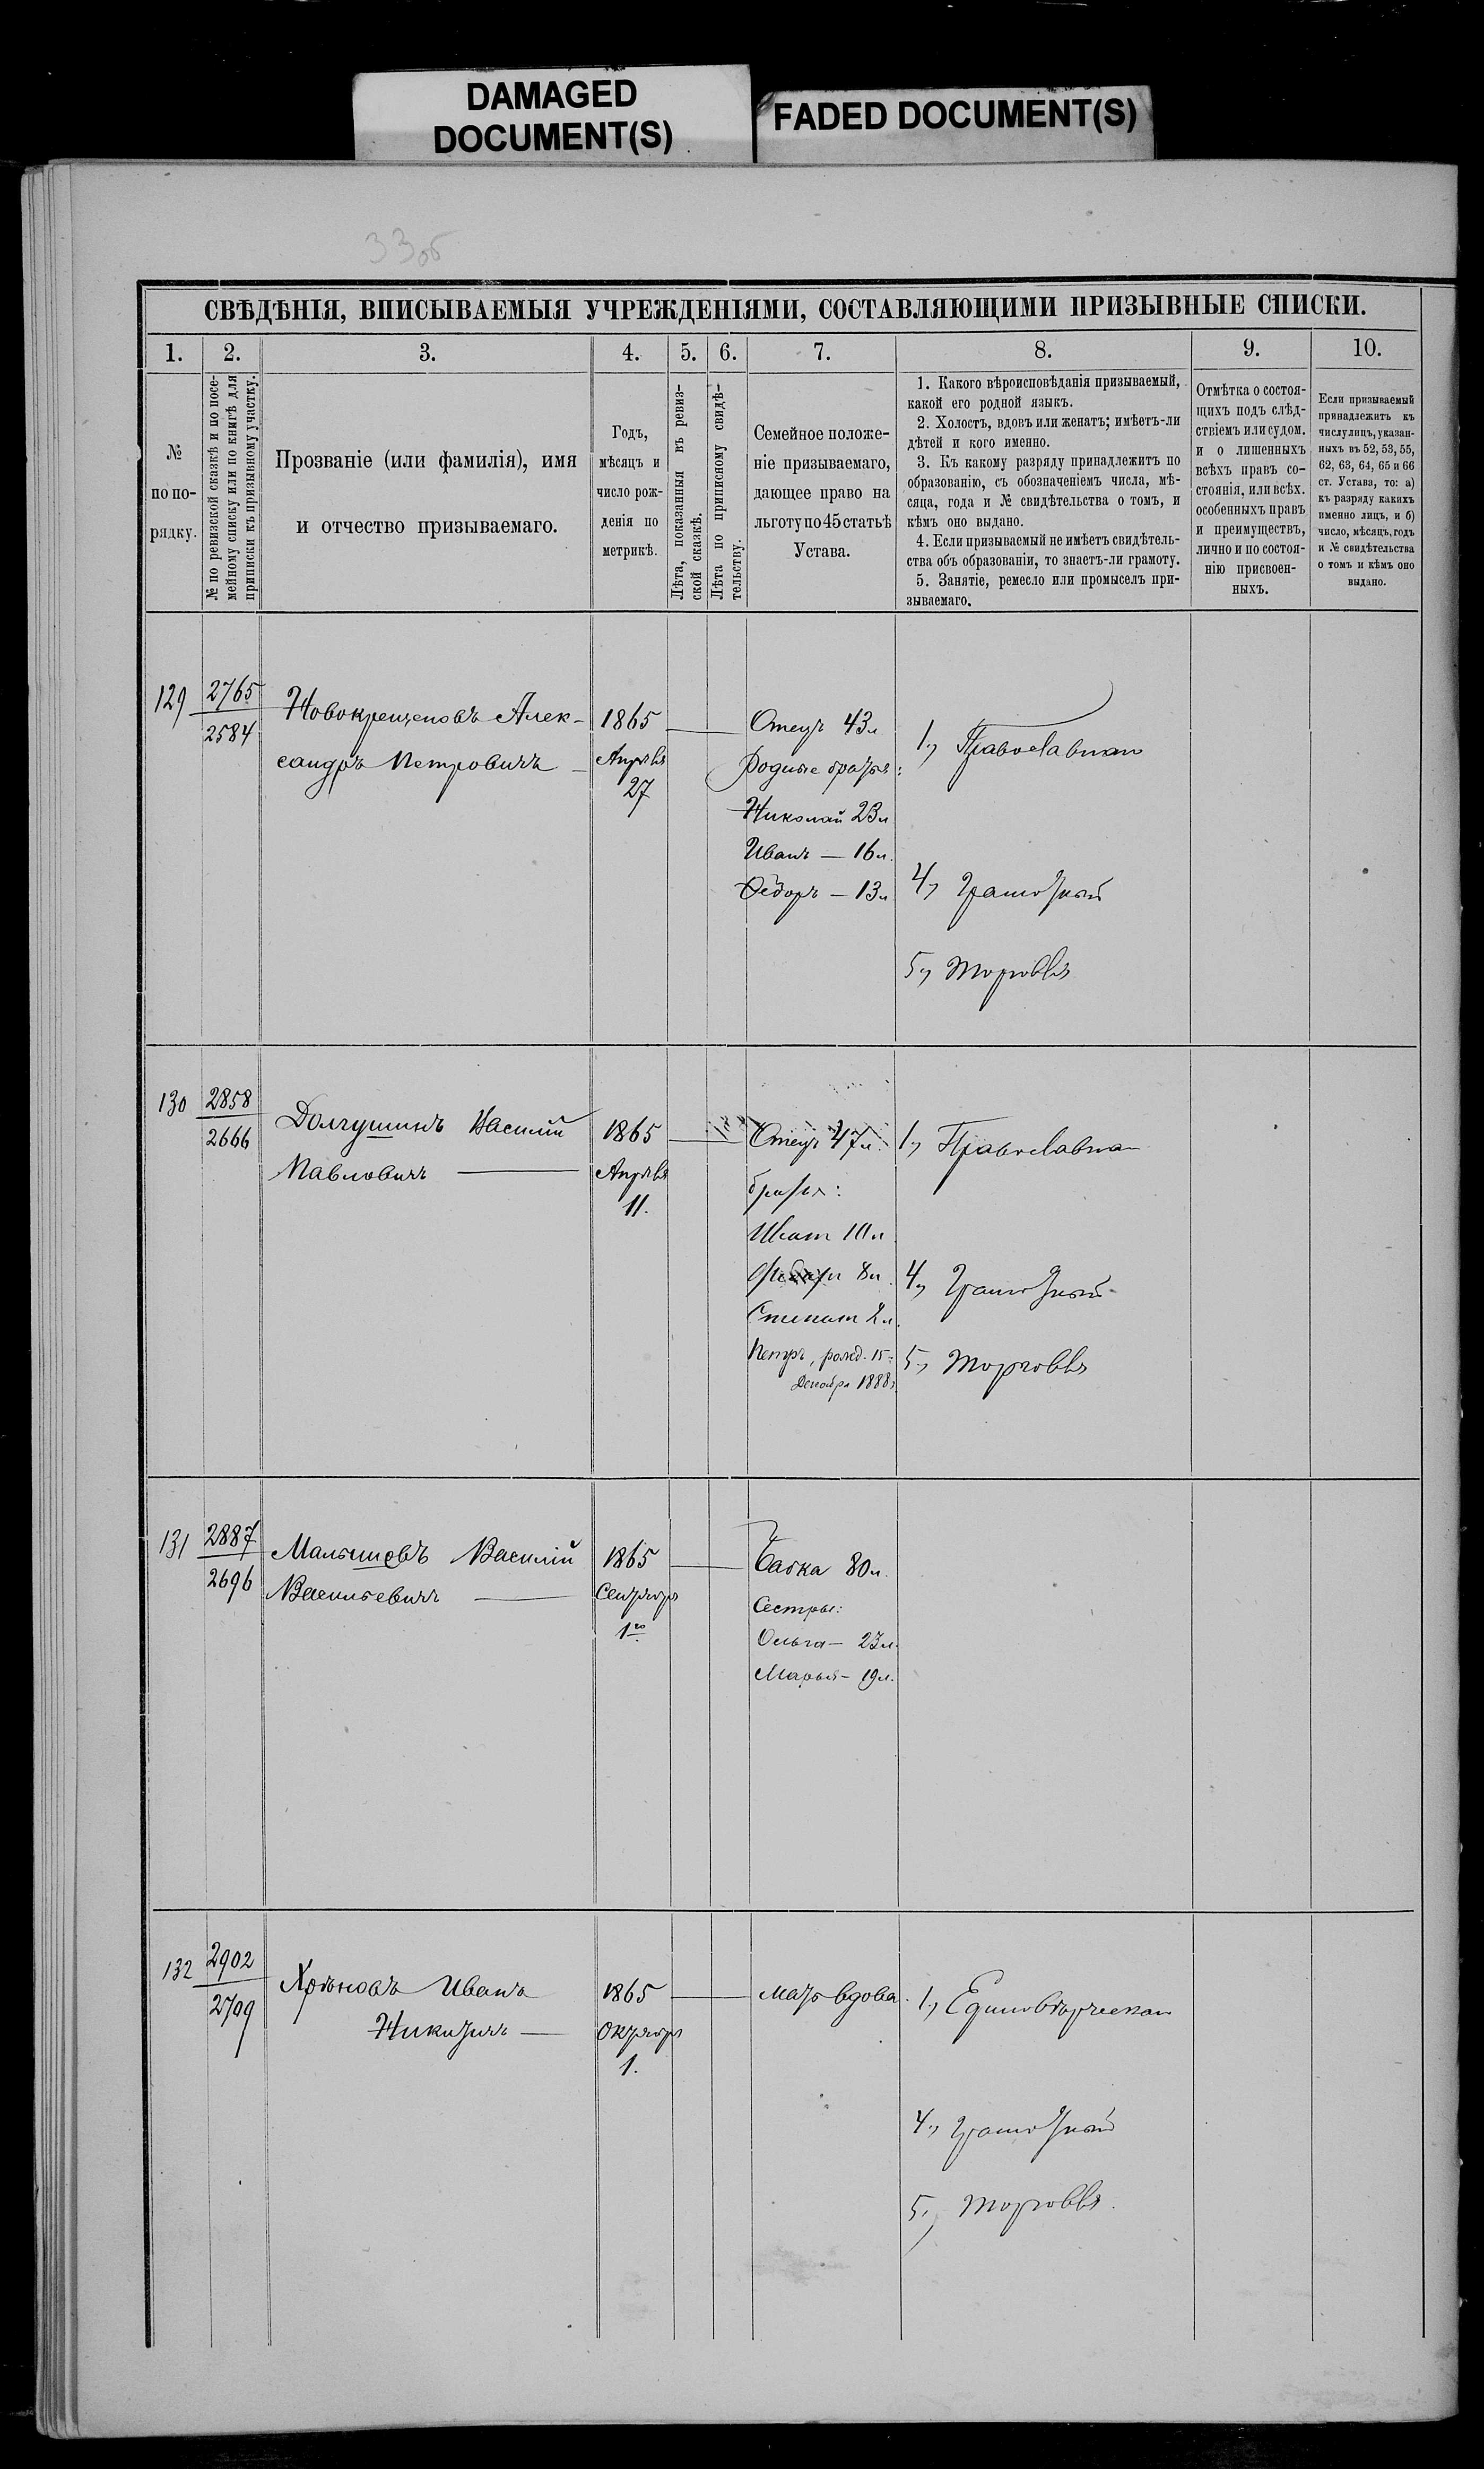 DAMAGED
DOCUMENT(S)
FADED DOCUMENT(S)
33об
СВѢДѢНІЯ, ВПИСЫВАЕМЫЯ УЧРЕЖДЕНІЯМИ, СОСТАВЛЯЮЩИМИ ПРИЗЫВНЫЕ СПИСКИ.
1. 2. 3. 4. 5. 6. 7. 8. 9. 10.
№
по по-
рядку.
№ по ревизской сказкѣ и по посе-
мейному списку или по книгѣ для
приписки къ призывному участку.
Прозваніе (или фамилія), имя
и отчество призываемаго.
Годъ,
мѣсяцъ и
число рож-
денія по
метрикѣ.
Лѣта, показанныя въ ревиз-
ской сказкѣ.
Лѣта по приписному свидѣ-
тельству.
Семейное положе-
ніе призываемаго,
дающее право на
льготу по 45 статьѣ
Устава.
1. Какого вѣроисповѣданія призываемый,
какой его родной языкъ.
2. Холостъ, вдовъ или женатъ; имѣетъ-ли
дѣтей и кого именно.
3. Къ какому разряду принадлежитъ по
образованію, съ обозначеніемъ числа, мѣ-
сяца, года и № свидѣтельства о томъ, и
кѣмъ оно выдано.
4. Если призываемый не имѣетъ свидѣтель-
ства объ образованіи, то знаетъ-ли грамоту.
5. Занятіе, ремесло или промыселъ при-
зываемаго.
Отмѣтка о состоя-
щихъ подъ слѣд-
ствіемъ или судом.
и о лишенныхъ
всѣхъ правъ со-
стоянія, или всѣх.
особенныхъ правъ
и преимуществъ,
лично и по состоя-
нію присвоен-
ныхъ.
Если призываемый
принадлежитъ къ
числу лицъ, указан-
ныхъ въ 52, 53, 55,
62, 63, 64, 65 и 66
ст. Устава, то: а)
къ разряду какихъ
именно лицъ, и б)
число, мѣсяцъ, годъ
и № свидѣтельства
о томъ и кѣмъ оно
выдано.
129
2765
2584
Новокрещеновъ Алек-
сандръ Петровичъ
1865
Апрѣля
27
Отецъ 43 л
Родные братья:
Николай 23 л
Иванъ — 16 л.
Ѳедоръ — 13 л
1, Православнаго
4, Грамотный
5, Торговля
130
2858
2666
Долгушинъ Василій
Павловичъ
1865
Апрѣля
11.
Отецъ 47 л.
братья:
Иванъ 10 л
8 л.
Степанъ 2 л.
Петръ, рожд. 15
Декабря 1888 г.
1, Православнаго
4, Грамотный
5, Торговля
131
2887
2696
Малышовъ Василій
Васильевичъ
1865
Сентября
1го
Бабка 80 л.
Сестры:
Ольга — 23 л.
Марья — 19 л.
132
2902
2709
Хрѣновъ Иванъ
Никитичъ
1865
Октября
1.
мать вдова.
1, Единовѣрческаго
4, Грамотный
5, Торговля.